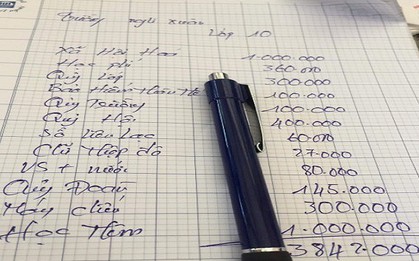 Trường nghi xuân
Lớp 10
Xã Hội Hoá 1.000.000
Học phí 360.000
Quỹ lớp 300.000
Bảo Hiểm 100.000
Quỹ Trường 100.000
Quỹ Hội 400.000
Sổ liên lạc 60.000
27.000
VS + nước 80.000
Quỹ Đoàn 145.000
Máy chiếu 300.000
Học Thêm 1.000.000
3842.000